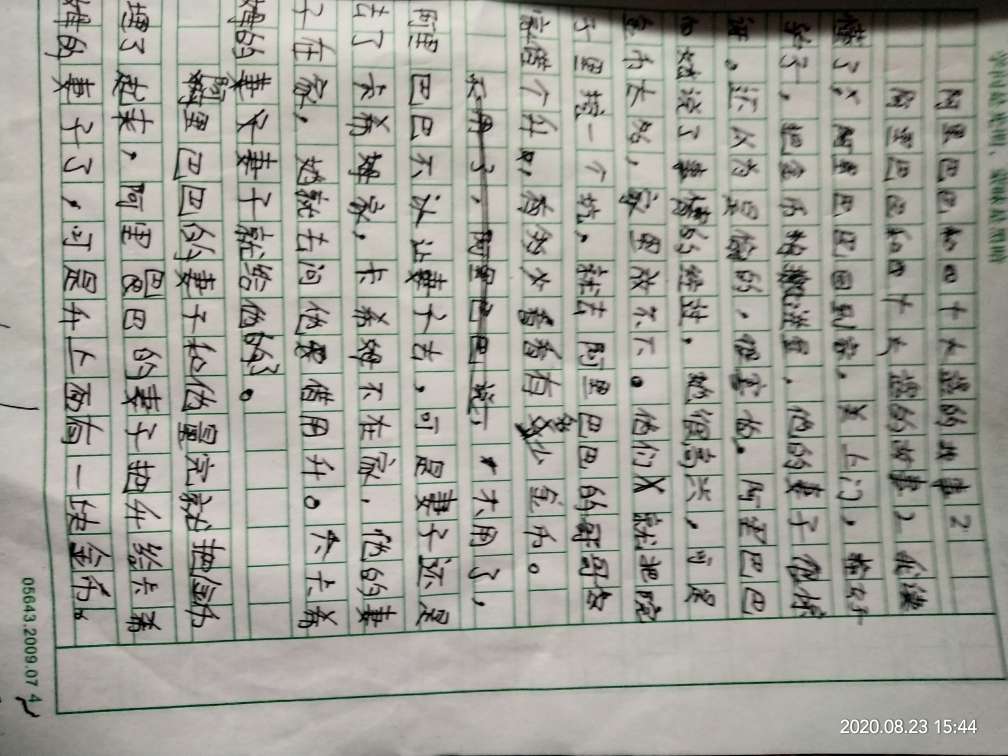 阿里巴巴和四十大盗的故事2
阿里巴巴和四十大盗的故事2继续
楼了,阿里巴巴回到家。关上门,拴好
驴子,把金币袋搬进屋,他的妻子很惊
讶。还以为是偷的,很害怕。阿里巴巴
和她说了事情的经过,她很高兴,可是
金币太多,家里放不下。他们就把院
子里挖一个坑。就去阿里巴巴的哥哥
家借个升,看看有多少金币。
阿里巴巴不让妻子去,可是妻子还是
去了卡希姆家,卡希姆不在家,他的妻
子在家,她就去问他要借用升。卡希
姆的妻子就给他了。
阿里巴巴的妻子和他量完就把金币
埋了起来,阿里巴巴的妻子把升给卡希
姆的妻子了,可是升上面有一块金币。
05643.2009.07
2020.08.23 15:44